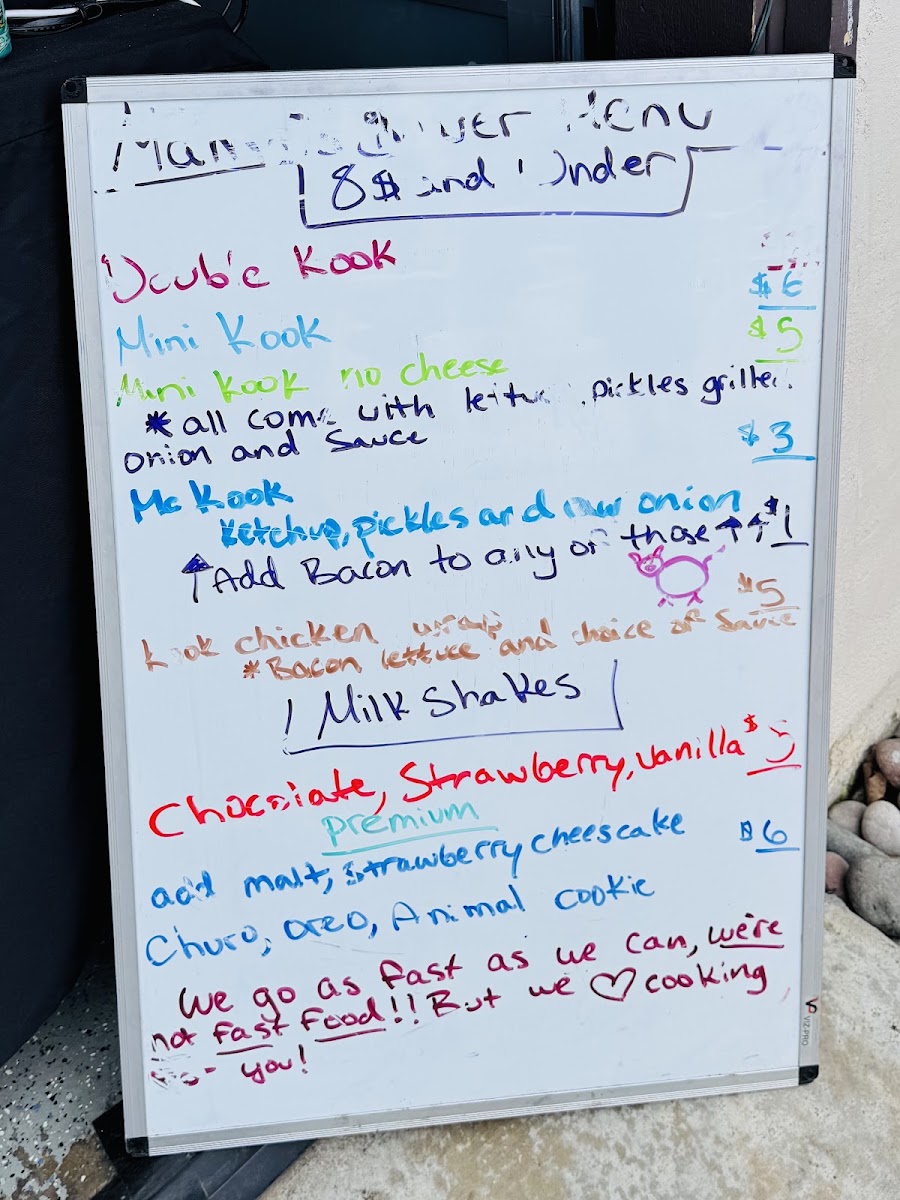 Menu
8$ and Under
Double Kook
Mini Kook $6
Mini Kook no cheese $5
*all come with lettuce, pickles grilled
onion and Sauce
Mc Kook $3
Ketchup, pickles and raw onion
↑Add Bacon to any of those↑↑ $1
Kook chicken wrap $5
*Bacon lettuce and choice of Sauce
Milk Shakes
Chocolate, Strawberry, Vanilla $5
premium
add malt, Strawberry cheescake $6
Churo, oreo, Animal cookie
We go as fast as we can, we're
not fast food!! But we ♡ cooking
you!
VIZ-PRO